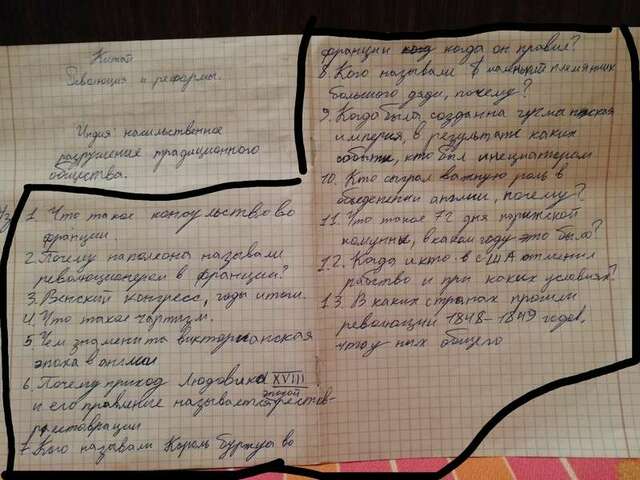 Китай
Революция и реформы.
Индия: насильственное
разрушение традиционного
общества.
1. Что такое консульство во
франции.
2. Почему наполеона называли
революционером в франции?
3. Венский конгресс, годы итоги.
4. Что такое чартизм.
5 Чем знаменита викторианская
эпоха в англии
6. Почему приход Людовика XVIII
и его правление называется эпохой
реставрации
7. Кого называли Король буржуа во
франции когда он правил?
8. Кого называли маленький племянник
большого дяди, почему?
9. Когда была создана
империя, в результате каких
событи, кто был инециатером
10. Кто сыграл важную роль в
обьеденении англии, почему?
11. Что такое 72 дня парижской
комунны, в каком году это было?
12. Когда и кто в сША отменил
рабство и при каких условиях?
13. В каких странах прошли
революции 1848-1849 годов,
что у них общего